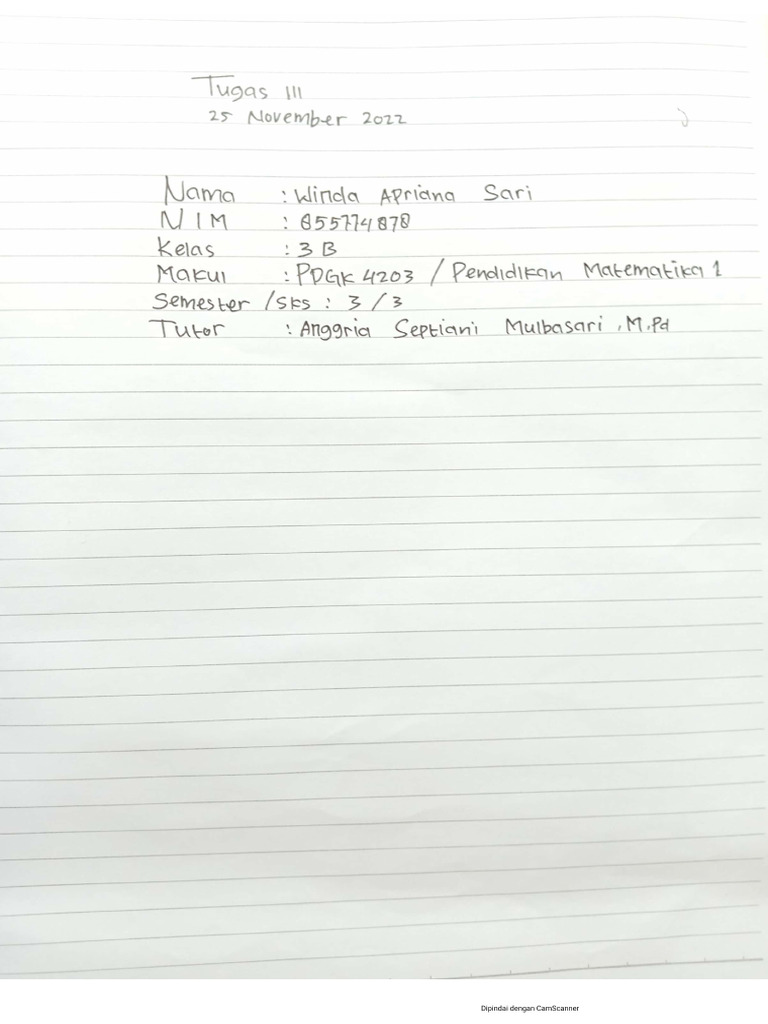 Tugas III
25 November 2022
Nama : Winda Apriana Sari
NIM : 855774878
Kelas : 3 B
Makul : PDGK 4203 / Pendidikan Matematika 1
Semester / SKS : 3 / 3
Tutor : Anggria Septiani Mulbasari, M.Pd
Dipindai dengan CamScanner